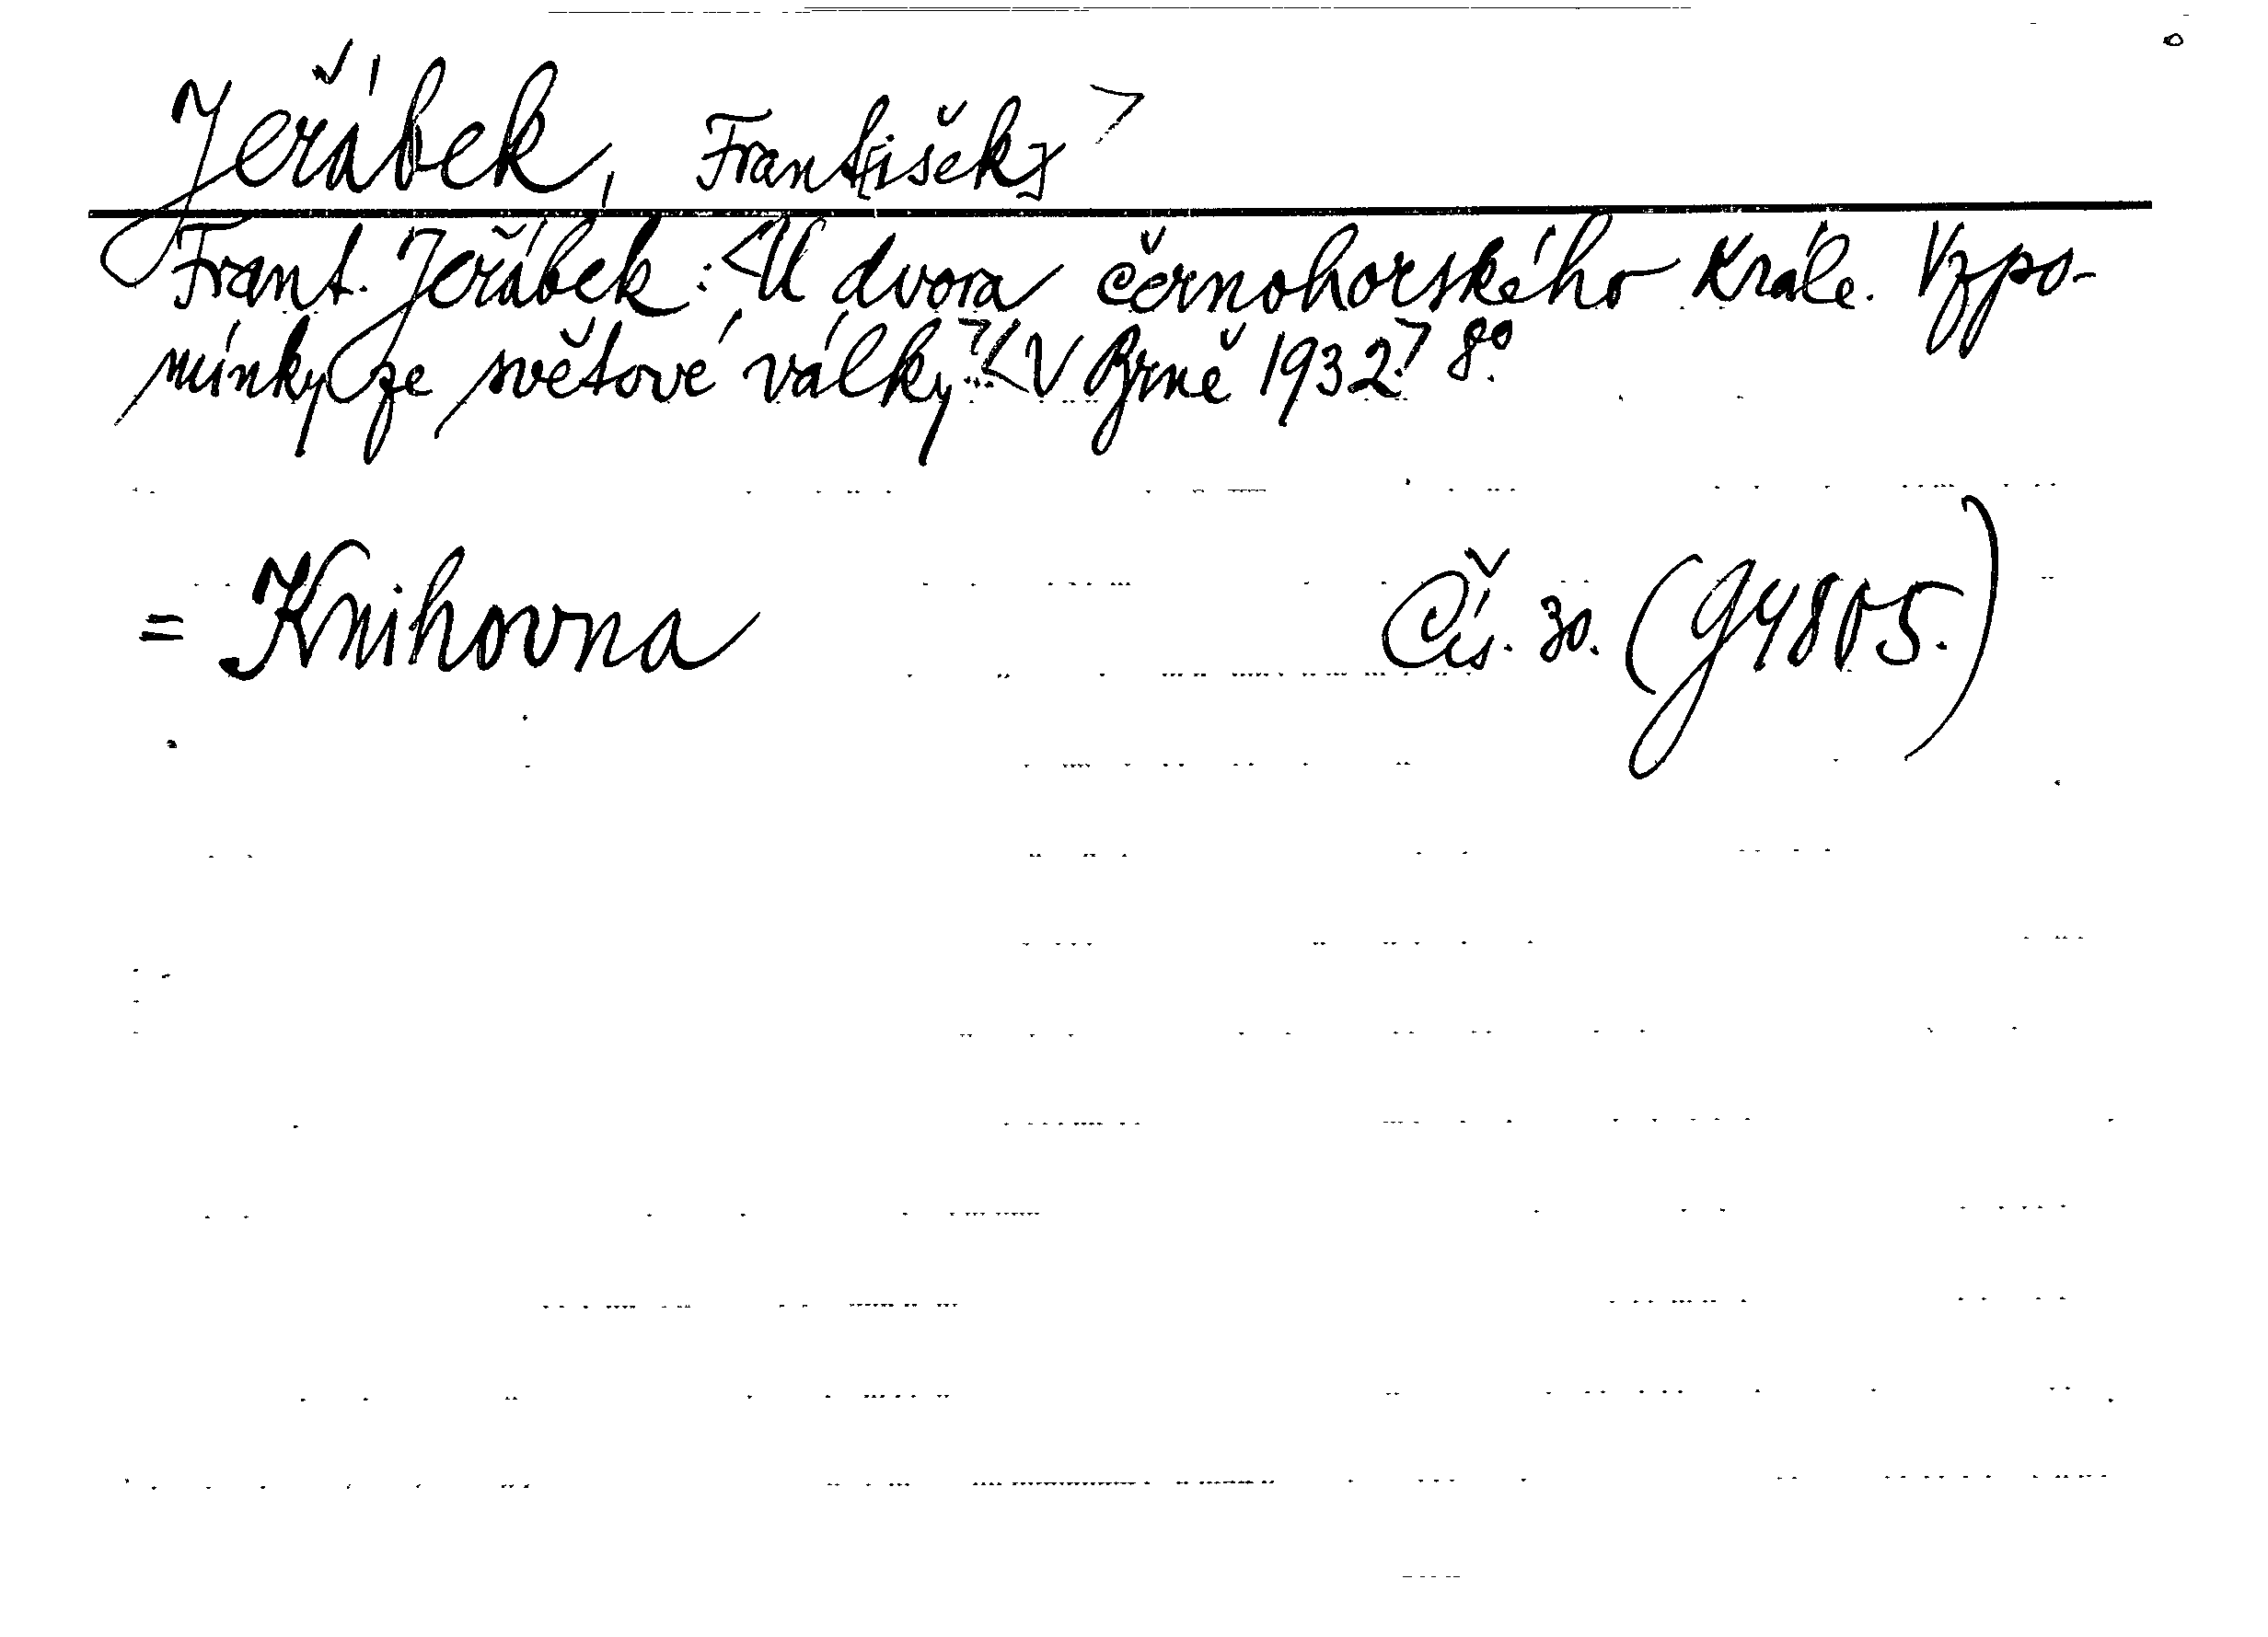 Jeřábek, Frant[išek]>
Frant. Jeřábek: <U dvora černohorského krále. Vzpo-
mínky ze světové války.> <V Brně 1932.> 8°.
= Knihovna Čís. 30. (g4805.)